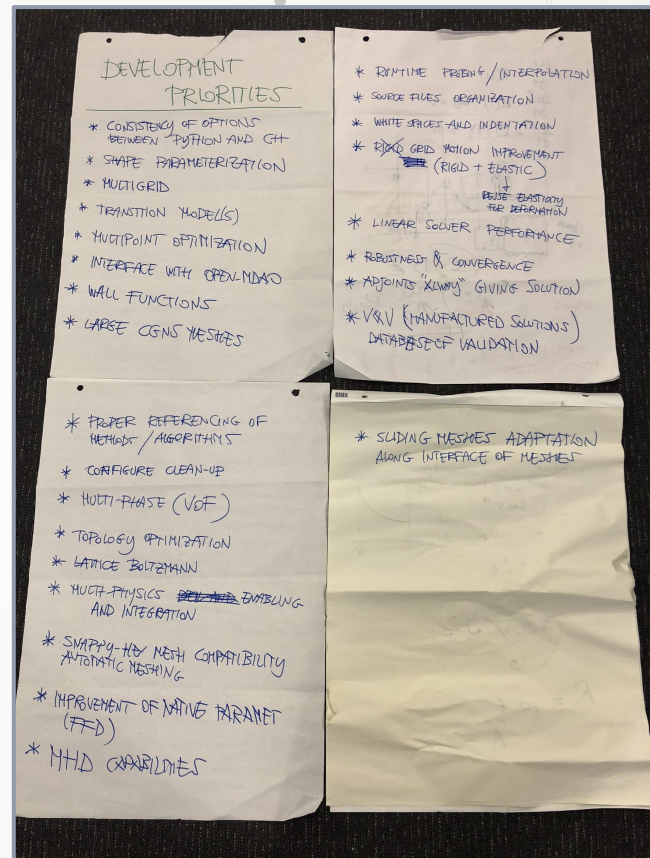 DEVELOPMENT
PRIORITIES
* CONSISTENCY OF OPTIONS
BETWEEN PYTHON AND C++
* SHAPE PARAMETERIZATION
* MULTIGRID
* TRANSITION MODEL(S)
* MULTIPOINT OPTIMIZATION
* INTERFACE WITH OPEN-MDAO
* WALL FUNCTIONS
* LARGE CGNS MESHES
* RUNTIME PROBING / INTERPOLATION
* SOURCE FILES ORGANIZATION
* WHITE SPACES AND INDENTATION
* RIGID GRID MOTION IMPROVEMENT
(RIGID + ELASTIC)
↓
REUSE ELASTICITY
FOR DEFORMATION
* LINEAR SOLVER PERFORMANCE
* ROBUSTNESS & CONVERGENCE
* ADJOINTS "ALWAY" GIVING SOLUTION
* V&V (MANUFACTURED SOLUTIONS)
DATABASE OF VALIDATION
* PROPER REFERENCING OF
METHODS / ALGORITHMS
* CONFIGURE CLEAN-UP
* MULTI-PHASE (VOF)
* TOPOLOGY OPTIMIZATION
* LATTICE BOLTZMANN
* MULTI-PHYSICS ENABLING
AND INTEGRATION
* SNAPPY-HEX MESH COMPATIBILITY
AUTOMATIC MESHING
* IMPROVEMENT OF NATIVE PARAMET
(FFD)
* MHD CAPABILITIES
* SLIDING MESHES ADAPTATION
ALONG INTERFACE OF MESHES